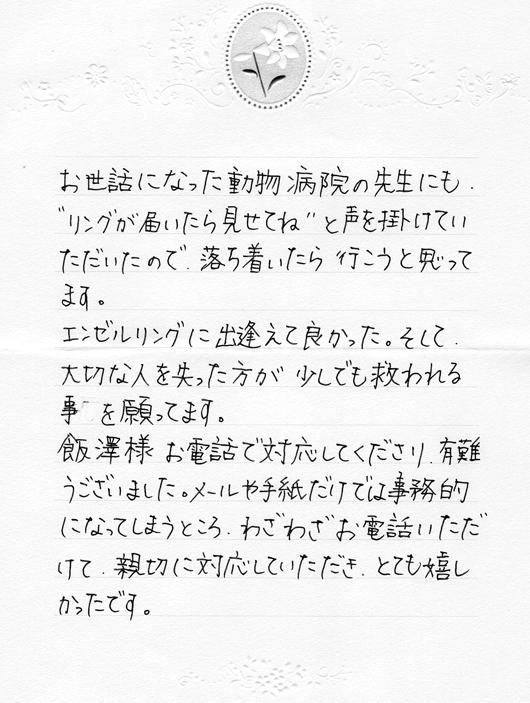 お世話になった動物病院の先生にも、
"リングが届いたら見せてね"と声を掛けてい
ただいたので、落ち着いたら行こうと思って
ます。
エンゼルリングに出逢えて良かった。そして、
大切な人を失った方が少しでも救われる
事を願ってます。
飯澤様お電話で対応してくださり、有難
うございました。メールや手紙だけでは事務的
になってしまうところ、わざわざお電話いただ
けて、親切に対応していただき、とても嬉し
かったです。